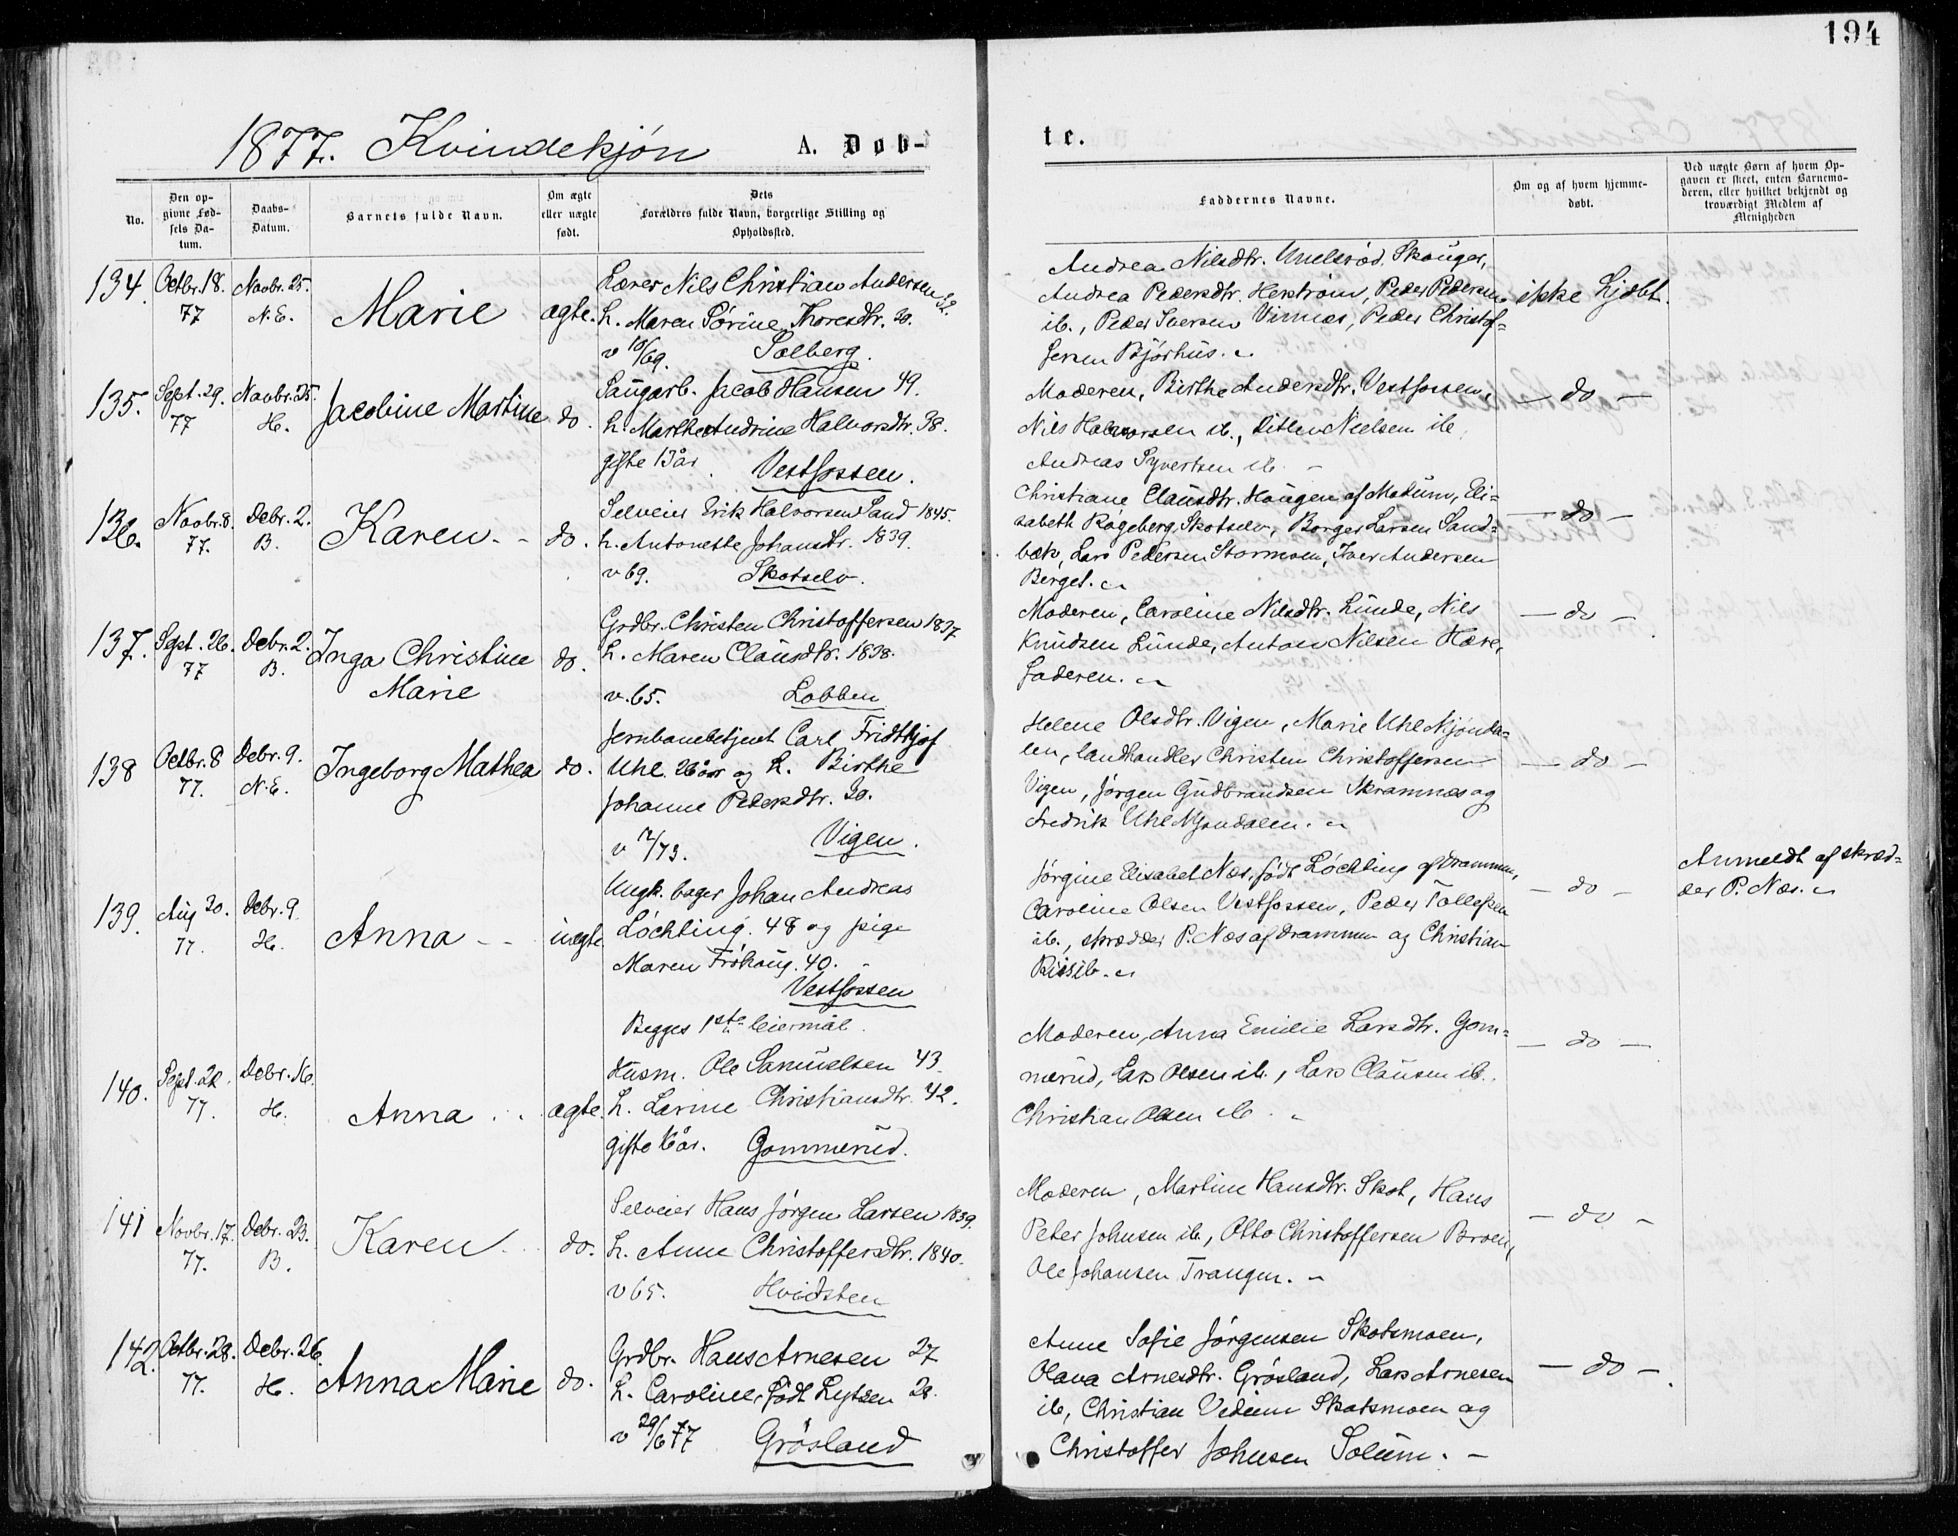 194
1877. Kvindekjøn A. Døb-
te.
No.
Den op-
givne Fød-
sels Da-
tum.
Daabs-
Datum.
Barnets fulde Navn.
Om ægte
eller uægte
født.
Dets
Forældres fulde Navn, borgerlige Stilling og
Opholdssted.
Faddernes Navne.
Om og af hvem hjemme-
døbt.
Ved uægte Børn af hvem Op-
gaven er skeet, enten Barnemo-
deren, eller hvilket bekjendt og
troværdigt Medlem af
Menigheden
134. Octbr. 18. Novbr. 25.
77 N.E. Marie ægte.
Lærer Nils Christian Andersen 32.
h. Maren Sørine Thoresdtr. 30.
v 10/69. Solberg.
Andrea Nilsdtr. Skouger,
Andrea Pedersdtr. Herstrøm, Peder Pedersen
ib., Peder Iversen Vinnes, Peder Christof-
fersen Bjørhus.
ikke hjdbt.
135. Sept. 29. Novbr. 25.
77 H. Jacobine Martine do.
Saugarb. Jacob Hansen 49.
h. Marthe Andrine Halvorsdtr. 38.
gifte 13 år. Vestfossen.
Moderen, Birthe Andersdtr. Vestfossen,
Nils Halvorsen ib., Ditlev Nielsen ib.
Andreas Syvertsen ib. -
- do -
136. Novbr. 8. Debr. 2.
77. B. Karen - - do.
Selveier Erik Halvorsen Sand 1845.
h. Antonette Johansdtr. 1839.
v 69. Skotselv.
Christiane Clausdtr. Haugen af Modum, Eli-
sabeth Røgeberg, Skotselv, Borger Larsen Sand-
bæk, Lars Pedersen Stormoen, Iver Andersen
Berget.
- do -
137. Sept. 26. Debr. 2.
77 B. Inga Christine
Marie do.
Grdbr. Christen Christoffersen 1837
h. Maren Clausdtr. 1838.
v. 65. Lobben
Moderen, Caroline Nilsdtr. Lunde, Nils
Knudsen Lunde, Anton Nilsen Hære,
faderen.
- do -
138 Octbr. 8 Debr. 9.
77. N.E. Ingeborg Mathea do.
Jernbanebetjent Carl Fridthjof
Uhl. 26 år og h. Birthe
Johanne Pedersdtr. 30.
v 7/73. Vigen.
Helene Olsdtr. Vigen, Marie Uhl Mjønda-
len, landhandler Christen Christoffersen
Vigen, Jørgen Gudbrandsen Skramnæs og
Fredrik Uhl Mjøndalen.
- do -
139. Aug 20. Debr. 9
77. H. Anna - - uægte
Ungk. bager Johan Andreas
Løchting. 48 og pige
Maren Frøhaug. 40. -
Vestfossen
Begges 1ste leiermål.
Jørgine Elisabet Næs, født Løchting af Drammen,
Caroline Olsen Vestfossen, Peder Tollefsen
ib., skrædder P. Næs af Drammen og Christian
Riis ib.
- do -
Anmeldt af skræd-
der P. Næs.
140. Sept. 22. Debr. 16.
77. H. Anna . . ægte.
Husm. Ole Samuelsen 43.
h. Larine Christiansdtr. 42.
gifte 16 år. Gommerud.
Moderen, Anna Emilie Larsdtr. Gom-
merud, Lars Olsen ib., Lars Clausen ib.
Christian Olsen ib. -
- do -
141 Novbr. 17. Debr. 23.
77. B. Karen do.
Selveier Hans Jørgen Larsen 1839.
h. Anne Christoffersdtr. 1840.
v 65. Hvidsten
Moderen, Martine Hansdtr. Skot, Hans
Peter Johnsen ib., Otto Christoffersen Broen,
Ole Johansen Trangen. -
- do -
142. Octbr. 28. Debr. 26.
77. H. Anna Marie do.
Grdbr. Hans Arnesen 27
h. Caroline, født Lytsen 28.
v 29/6 77 Grøsland
Anne Sofie Jørgensen Skotsmoen,
Olava Arnesdtr. Grøsland, Lars Arnesen
ib, Christian Vedum Skotsmoen og
Christoffer Johnsen Solum. -
- do -